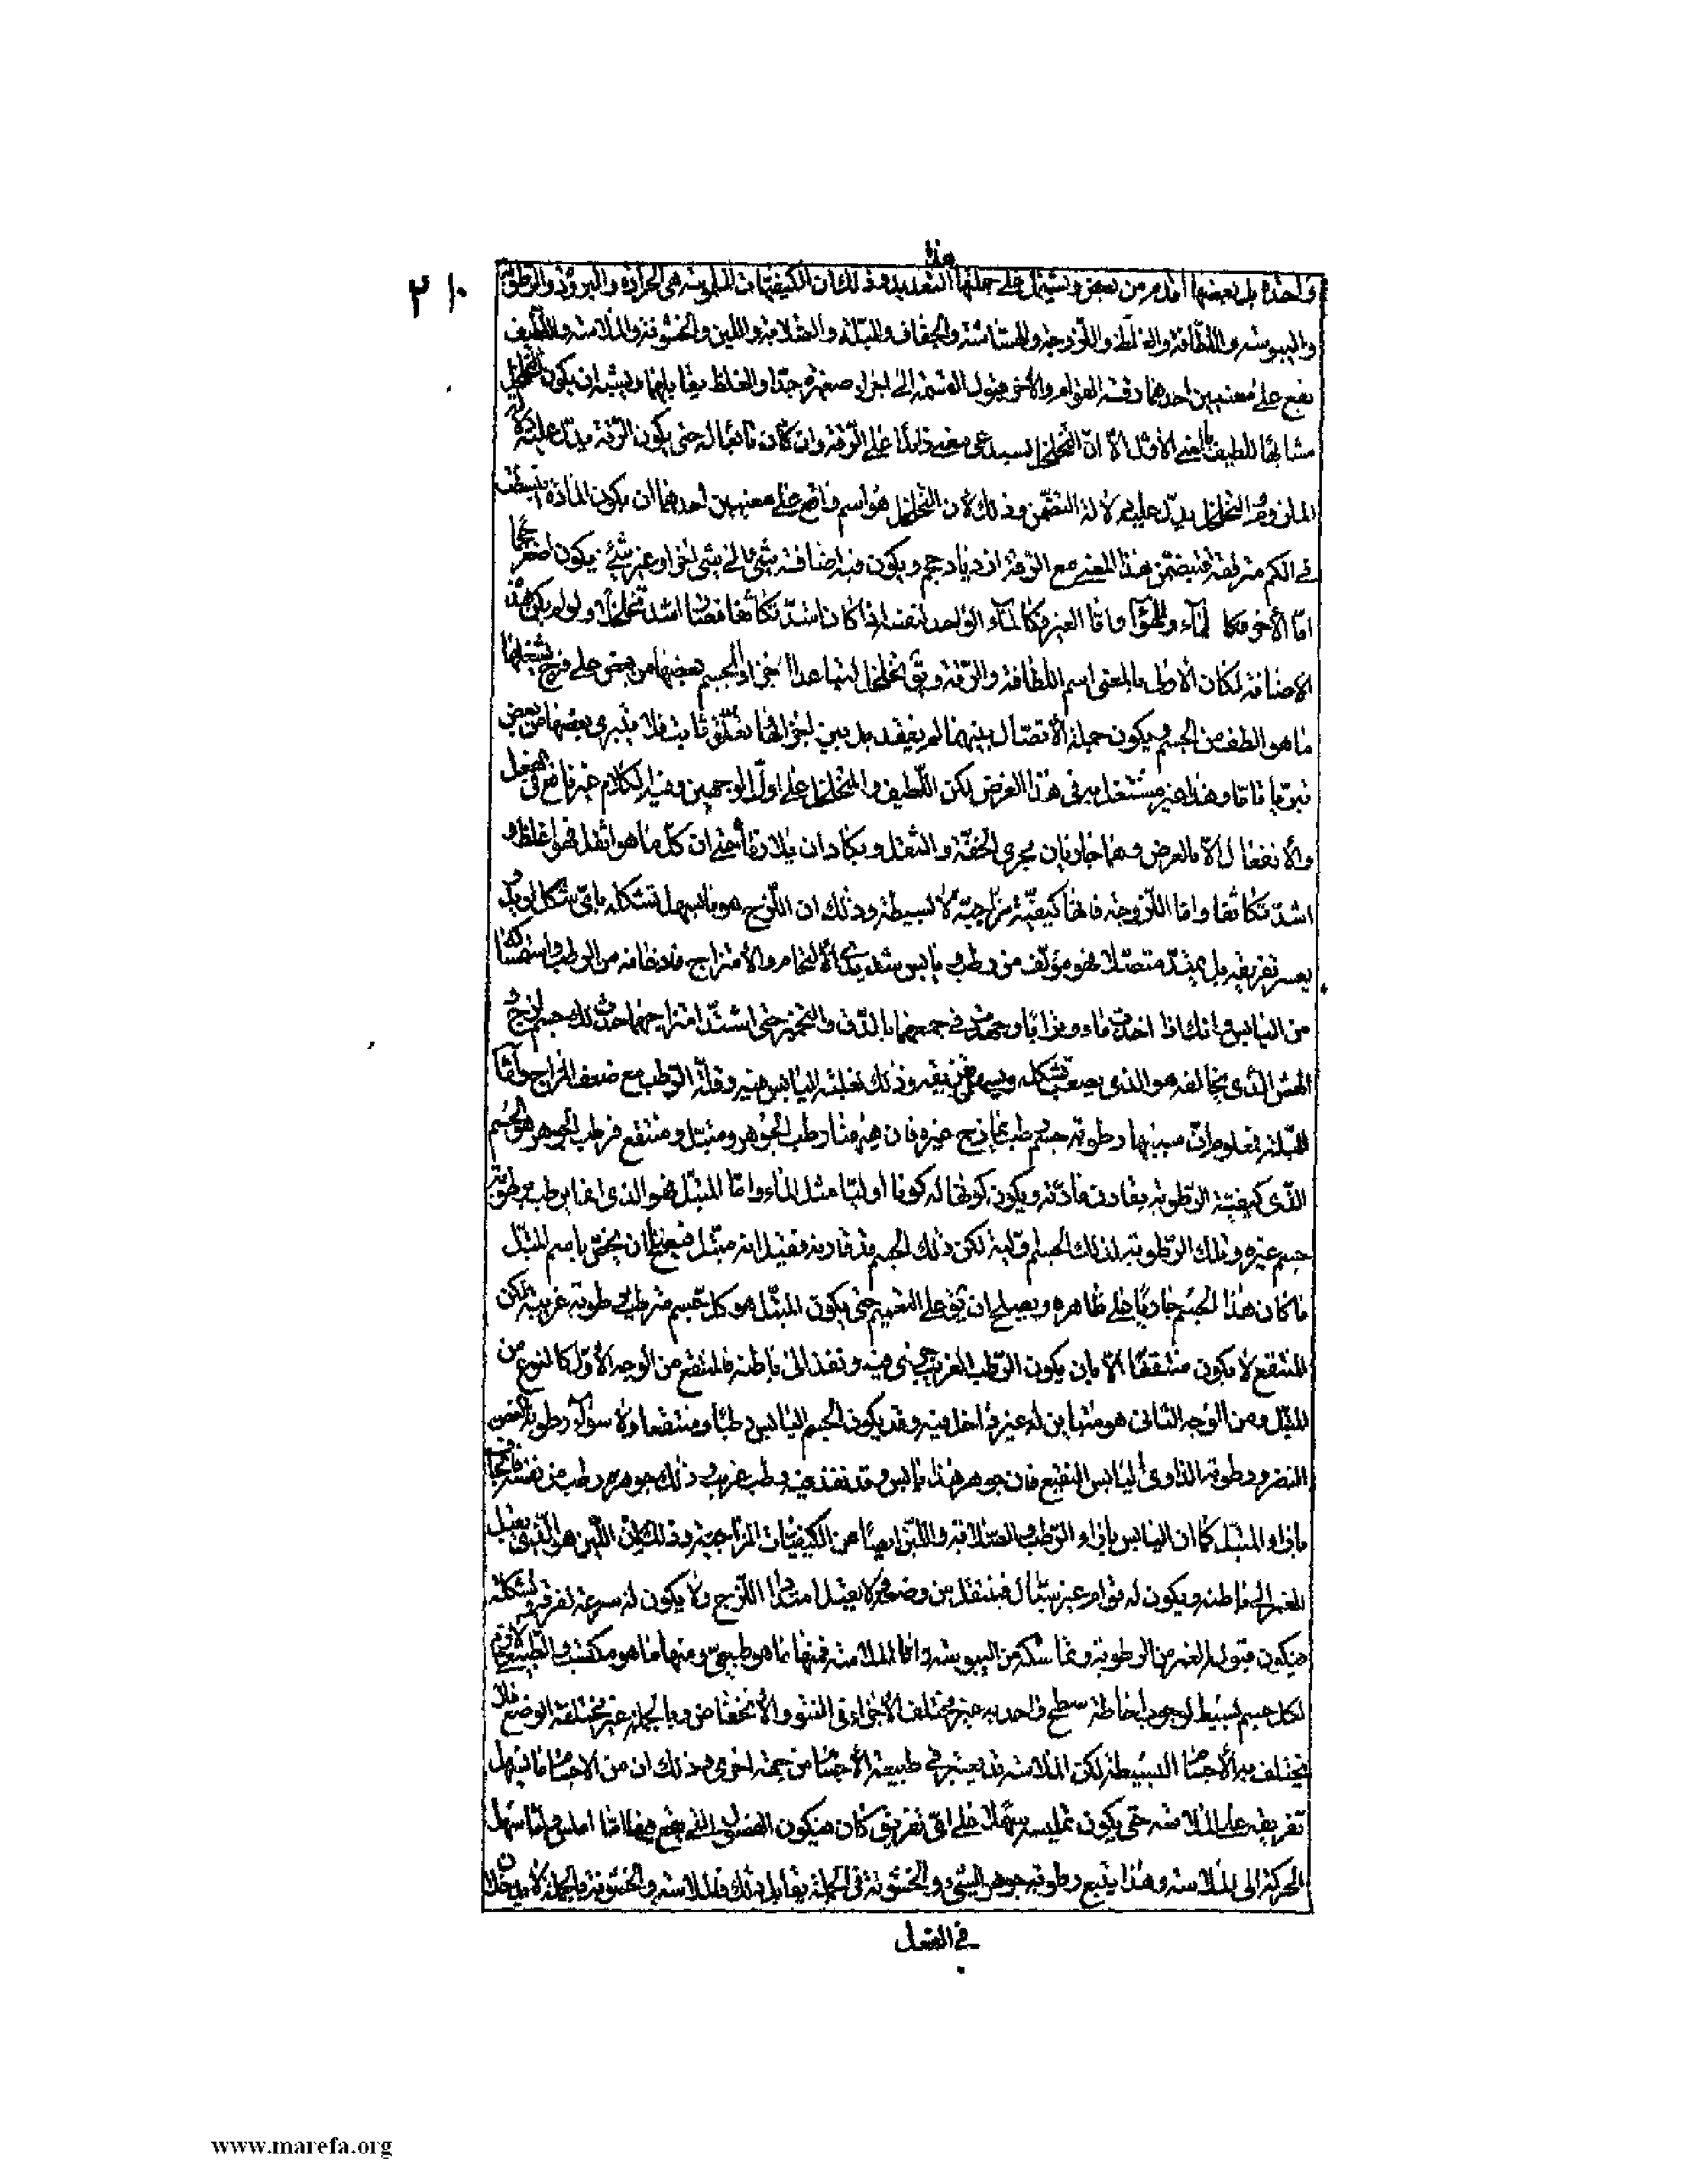 ٢١٠
هذه
واحدة بل بعضها اقدم من بعض ويشتمل على جملتها التعديد وذلك ان الكيفيات الملموسة هى الحرارة والبرودة والرطوبة
واليبوسة واللطافة والغلظ واللزوجة والهشاشة والجفاف والبلة والصلابة واللين والخشونة والملاسة واللطيف
يقع على معنيين احدهما رقة القوام والآخر قبول القسمة الى اجزاء صغيرة جدا والغلظ يقابلهما ويشبه ان يكون التخلخل
مشابها للطيف بالمعنى الأول الا ان التخلخل يستدعى معنى زائدا على الرقة وان كان تابعا له حتى يكون الرقة يدل عليه دلالة
الملزوم والتخلخل يدل عليه دلالة التضمن وذلك لأن التخلخل هو اسم واقع على معنيين احدهما ان يكون المادة انبسطت
فى الكم مترققة فيتضمن هذا المعنى مع الرقة ازدياد حجم ويكون فيه اضافة شئ الى شئ اخر او غير شئ يكون اصغر حجما
اما الآخر فكالماء والهواء واما الغير فكالماء الواحد نفسه اذا كان اشد تكاثفا فصار اشد تخلخلا ولو لم يكن هذه
الاضافة لكان الأولى بالمعنى اسم اللطافة والرقة ويق تخلخل لتباعد اجزاء الجسم بعضها من بعض على فرج يشغلها
ما هو الطف من الجسم ويكون جملة الأتصال بينهما لم يفقد بل بين اجزائها تعلق ثابت فلا يتبرى بعضها من بعض
تبريا تاما وهذا غير مستعمل فى هذا الغرض لكن اللطيف والتخلخل على اول الوجهين وفيه الكلام غير نافع فى الفعل
والأنفعال الا بالعرض وهما جاريان مجرى الخفة والثقل ويكادان يتلازما حتى ان كل ما هو اثقل فهو اغلظ و
اشد تكاثفا واما اللزوجة فانها كيفية مزاجية لا بسيطة وذلك ان اللزج هو ما يسهل تشكله باى شكل اريد
يعسر تفريقه بل يمتد متصلا فهو مؤلف من رطب ويابس شديدى الألتحام والأمتزاج فاذعانه من الرطب واستمساكه
من اليابس وانك اذا اخذت ماء وترابا وجهدت فى جمعهما بالدق والتخمير حتى اشتد امتزاجهما حدث لك جسم لزج و
الهش الذى يخالفه هو الذى يصعب تشكله ويسهل تفريقه وذلك لغلبة اليابس فيه وقلة الرطب مع ضعف المزاج واما
البلة فمعلوم ان سببها رطوبة جسم رطب يمازج غيره فان ههنا رطب الجوهر ومبتل ومنتقع فرطب الجوهر هو الجسم
الذى كيفية الرطوبة يقارن مادته ويكون كونها له كونا اوليا مثل الماء واما المبتل فهو الذى انما يرطب برطوبة
جسم غيره وتلك الرطوبة لذلك الجسم اولية لكن ذلك الجسم قد قارنه فقيل انه مبتل فيصلح ان يخص باسم المبتل
ما كان هذا الجسم جاريا على ظاهره ويصلح ان يق على التعميم حتى يكون المبتل هو كل جسم مترطب رطوبة غريبة لكن
المنتقع لا يكون منتقعا الا بان يكون الرطب الغريب جرى فيه ونفذ الى باطنه فالمنتقع من الوجه الأول كالنوع من
المبتل ومن الوجه الثانى هو مباين له غير داخل فيه وقد يكون الجسم اليابس رطبا ومنتقعا ولا سواء رطوبة الغصن
النضر ورطوبة الذاوى اليابس النقيع فان جوهر هذا يابس وقد نفذ فيه رطب غريب وذلك جوهره رطب من نفسه والجفاف
بازاء المبتل كما ان اليابس بازاء الرطب والصلابة واللين ايضا من الكيفيات المزاجية وذلك لأن اللين هو الذى يقبل
الغمز الى باطنه ويكون له قوام غير سيال فينتقل من وضعه ولا يقبل امتداد اللزج ولا يكون له سرعة تفرقه وتشكله
فيكون قبوله الغمز من الرطوبة وتماسكه من اليبوسة واما الملاسة فمنها ما هو طبيعى ومنها ما هو مكتسب والطبيعى لازم
لكل جسم بسيط لوجوب احاطة سطح واحد به غير مختلف الأجزاء فى النتو والأنخفاض وبالجملة غير مختلفة الوضع فلا
يختلف به الأجسام البسيطة لكن الملاسة قد يعتبر فى طبيعة الأجسام من جهة اخرى وذلك ان من الاجسام ما يسهل
تفريقه على الملاسة حتى يكون تمليسه سهلا على اى تفريق كان فيكون الفصل الذى يقع فيها اما املس واما سهل
الحركة الى الملاسة وهذا يتبع رطوبة جوهر الشئ والخشونة فى الجملة يقابل ذلك فالملاسة والخشونة بالجملة لا يدخلان
فى الفعل
www.marefa.org